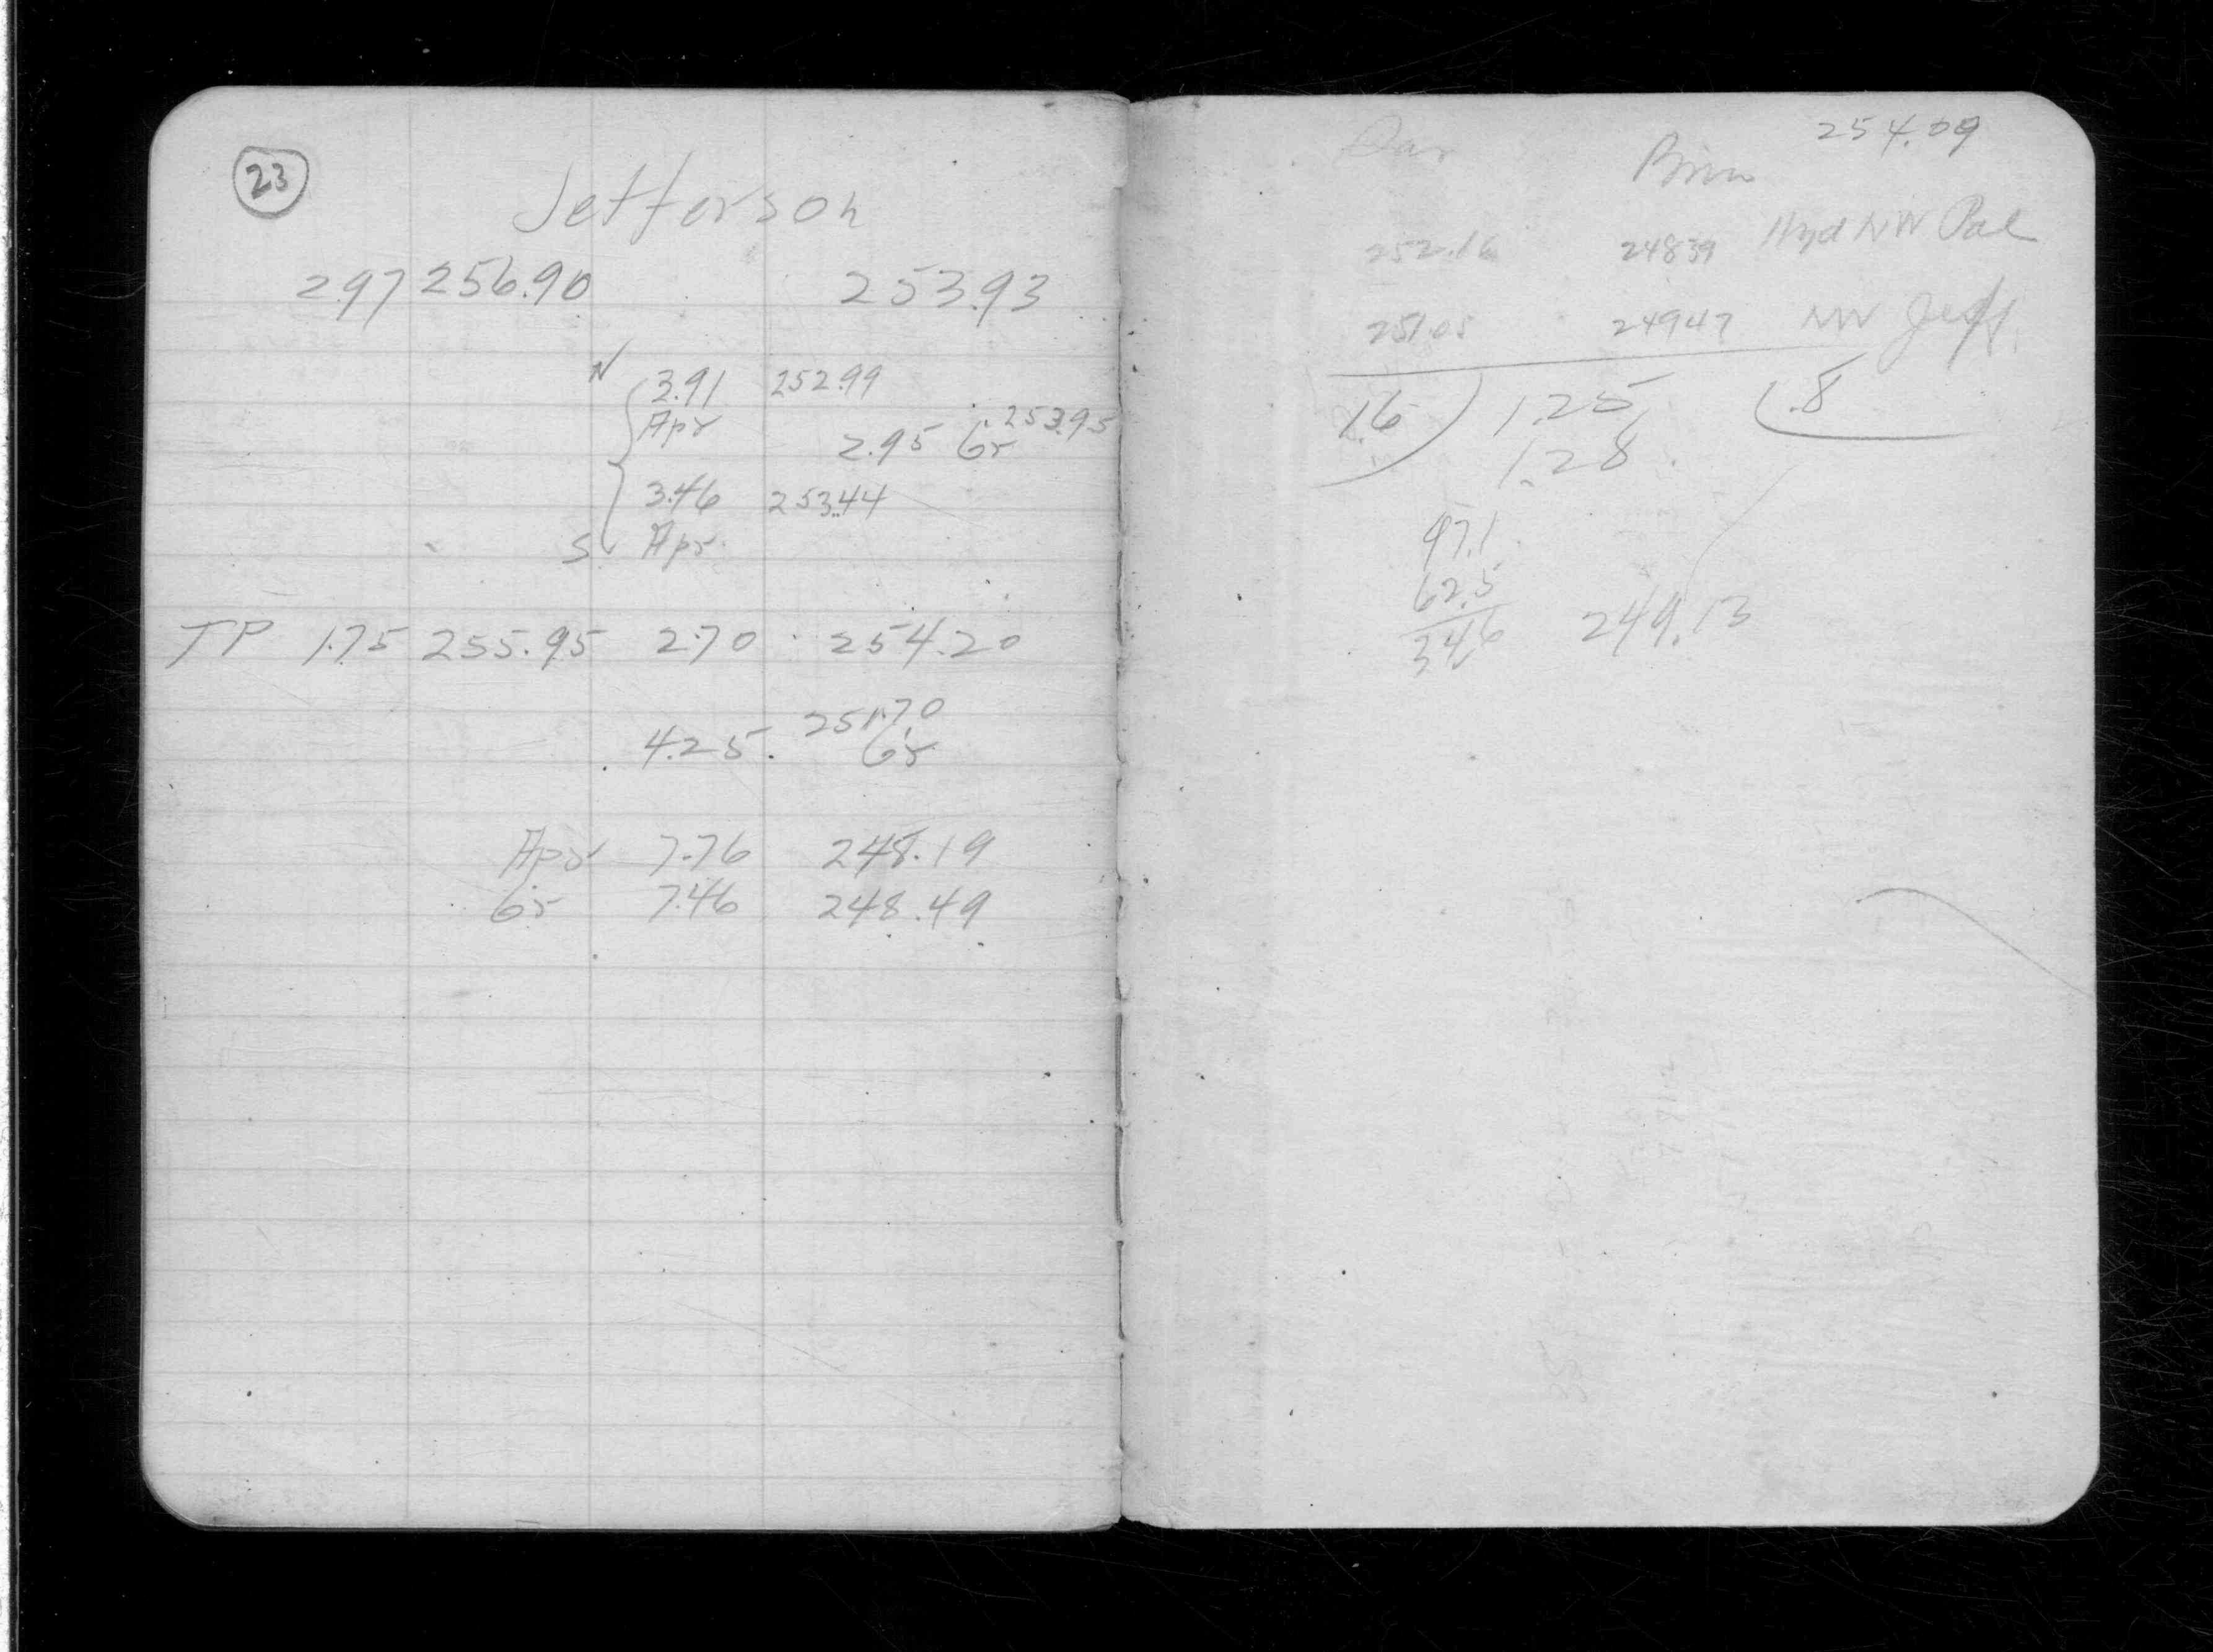 23
Jefferson
2.97 256.90 253.93
N 3.91 252.99
Apr 253.95
2.95 Gr
3.46 253.44
S Apr
TP 1.75 255.95 2.70 254.20
251.70
4.25 Gr
Apr 7.76 248.19
Gr 7.46 248.49
254.09
252.16 24839 Hyd NW Pal
251.05 24947 NW Jeff.
1.6 ) 1.25 ( .8
1.28
97.1
62.5
34.6 249.13